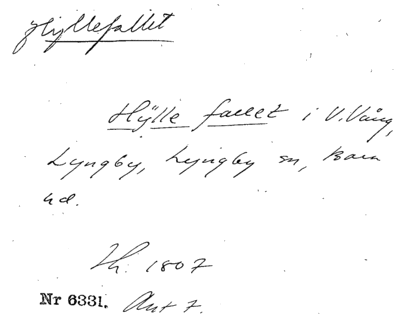 Hyllefallet
Hÿlle fallet i V. Vång,
Lyngby, Lyngby sn, Bara
hd.
Lh. 1807
Nr 6331. Akt 7.